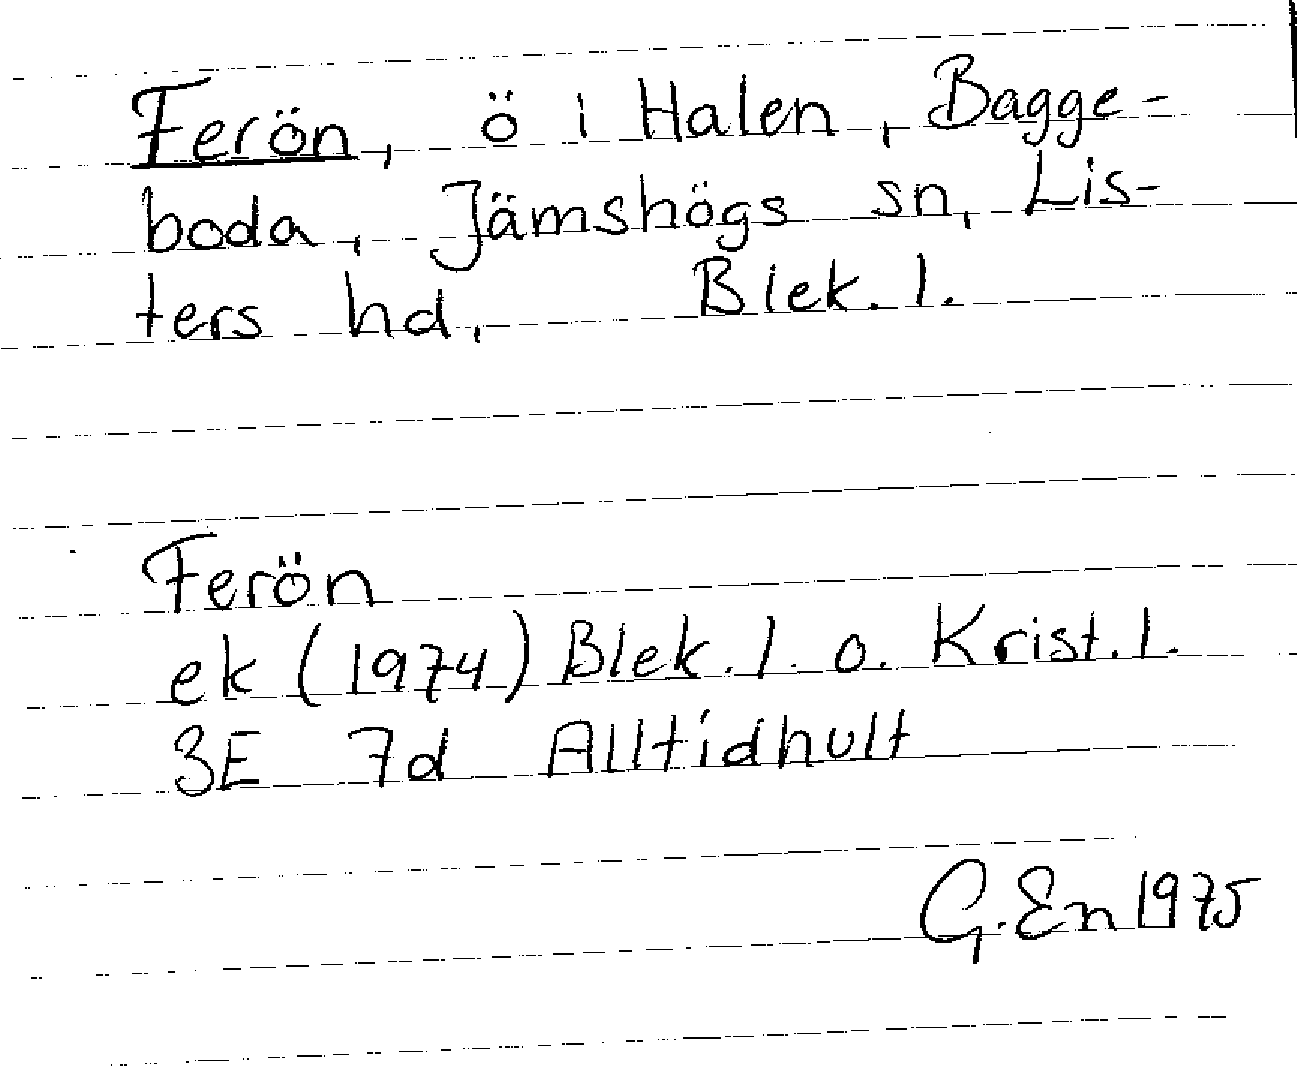 Ferön, ö i Halen, Bagge=
boda, Jämshögs sn, Lis-
ters hd, Blek. l.
Ferön
ek (1974) Blek. l. o. Krist. l.
3E 7d Alltidhult
G. En 1975